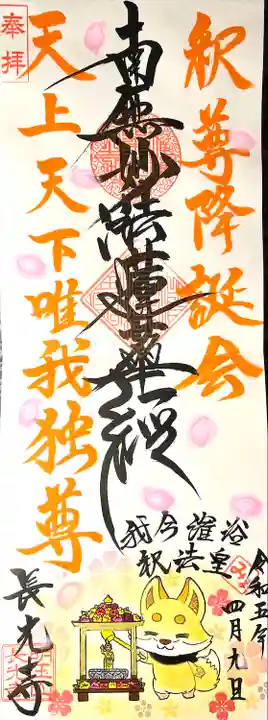 釈尊降誕会
奉拝
南無妙法蓮華経
天上天下唯我独尊
令和五年
四月九日
浴
灌
今
我
皇
法
釈
長光寺